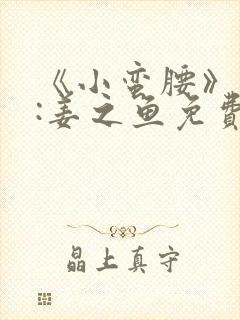 《小蛮腰》
:姜之鱼免费
晶上真守